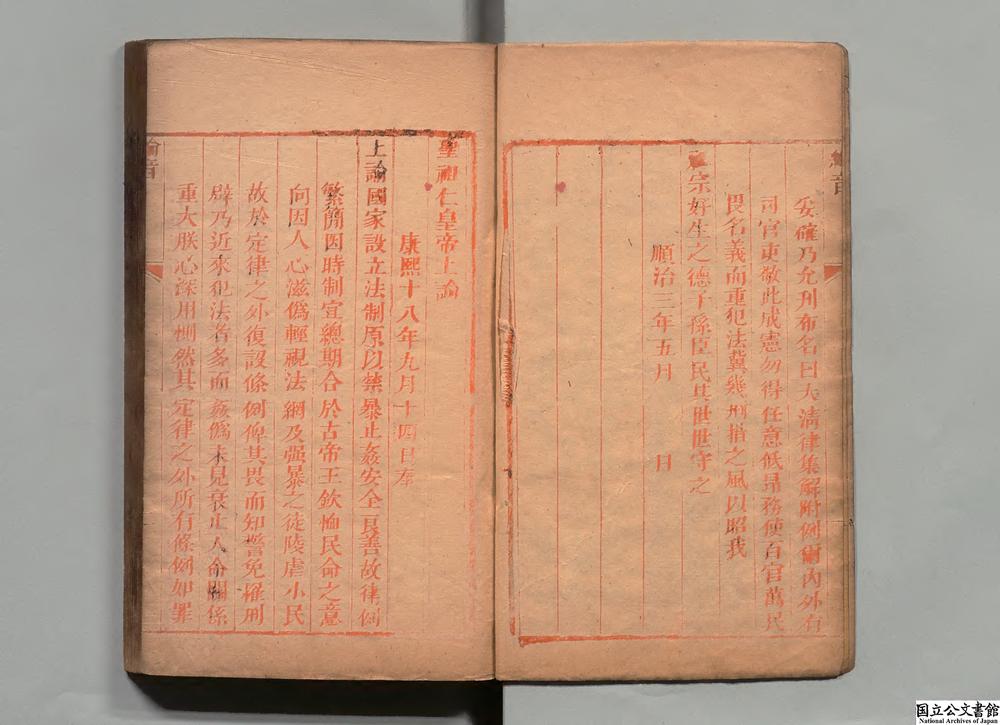 綸音
妥確乃允刊布名曰大淸律集解附例爾內外有
司官吏敬此成憲勿得任意低昻務使百官萬民
畏名義而重犯法冀幾刑措之風以昭我
祖宗好生之德子孫臣民其世世守之
順治三年五月 日
聖祖仁皇帝上諭
康熙十八年九月十四日奉
上諭國家設立法制原以禁暴止姦安全良善故律例
繁簡因時制宜總期合於古帝王欽恤民命之意
向因人心滋僞輕視法網及强暴之徒陵虐小民
故於定律之外復設條例俾其畏而知警免罹刑
辟乃近來犯法者多而姦僞未見衰止人命關係
重大朕心深用惻然其定律之外所有條例如罪
綸音
国立公文書館
National Archives of Japan